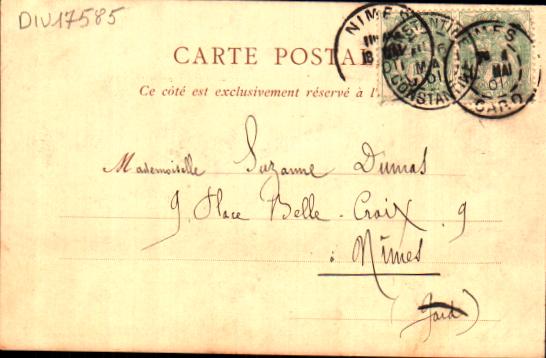 DIV17585
CARTE POSTAL
Ce côté est exclusivement réservé à l'
NIMES
CONSTANTINE
MAI
01
NIMES
MAI
01
GARD
Mademoiselle Suzanne Dumas
9 Place Belle-Croix 9
à Nîmes
(Gard)